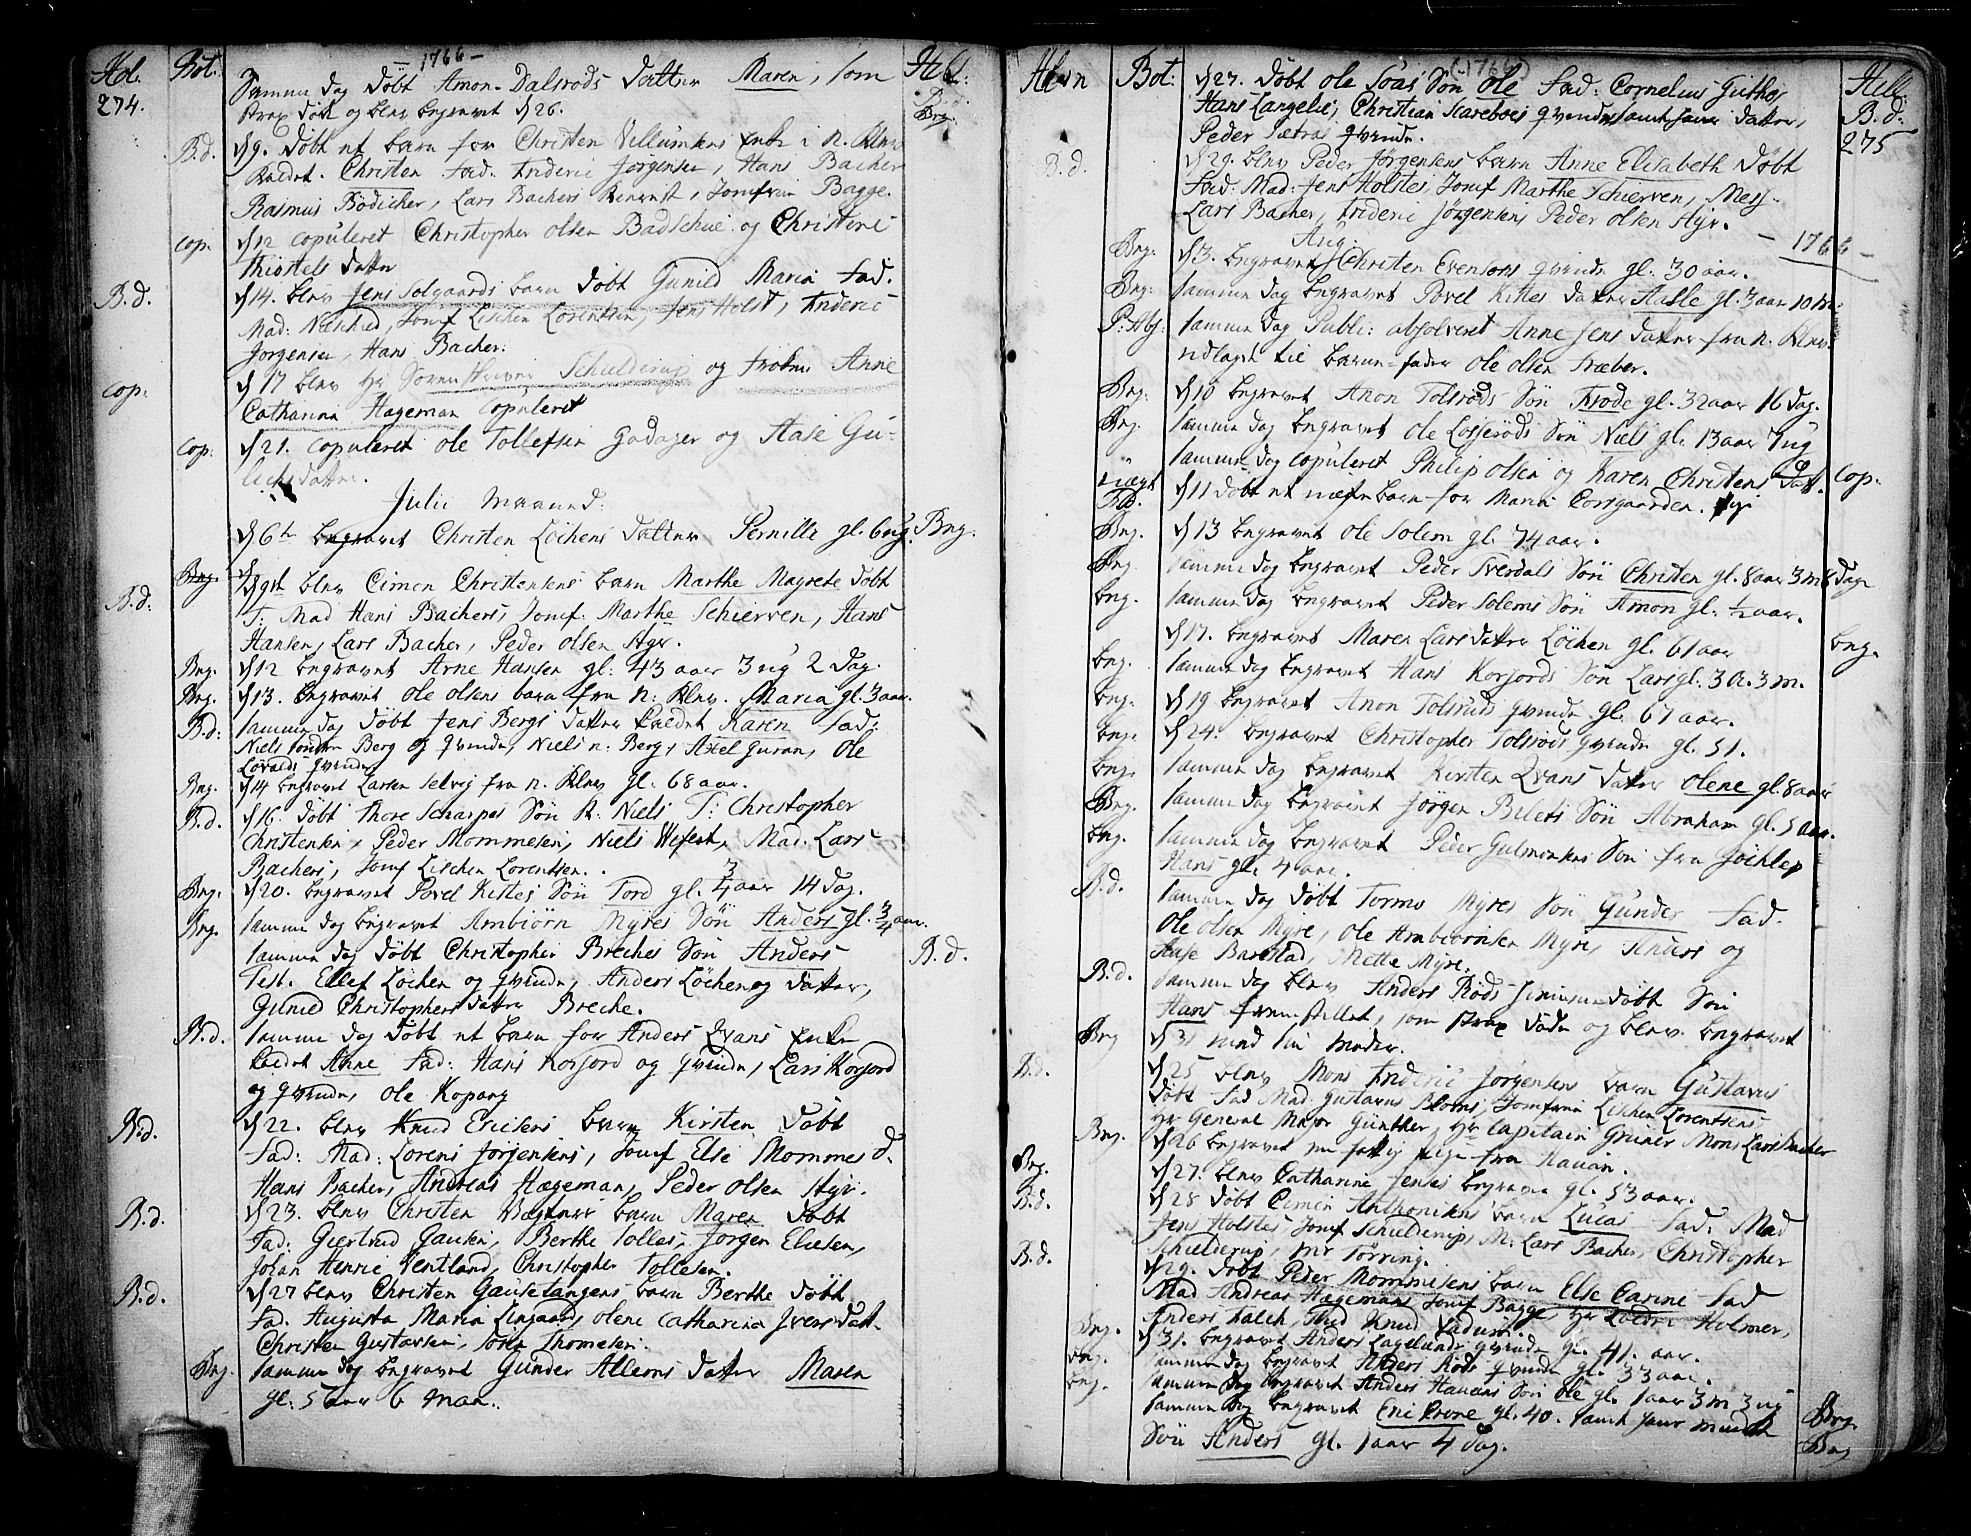 Hol. Bot. - 1766 - Hel:
274.
Samme dag døbt Amon Dalsrøds datter Maren, som
strax døde og blev begravet d 26. Beg.
B.d. d 9. døbt et barn for Christen Villumsens Enke i n. Klev
kaldet Christen fad. Frideric Jørgensen, Hans Bacher
Rasmus Bødicher, Lars Bachers, Jomfru Bagge.
cop. d 12 copuleret Christopher olsen Badschue og Christine
datter
B.d. d 14. blev Jens Solgaards barn døbt Gunild Maria fad.
Mad: Jomf Lischen Lorentsen, Jens Holst, Frideric
Jørgensen, Hans Bacher:
cop. d 17 blev Hr Søren Schielderup og frøken Anne
Catharina Hageman Copuleret
cop. d 21. copuleret ole Tollefsen Gadager og Aase Gu-
datter.
Julii Maaned.
d 6te begravet Christen Løchens datter Pernille gl. 6 ug. Beg.
Beg.
B.d. d 9st blev Cimen Christensens barn Marthe Magrete døbt
T: Mad Hans Bachers, Jomf: Marthe Schierven, Hans
Hansen, Lars Bacher, Peder olsen Styr.
Beg. d 12 begravet Arne Hansen gl: 43 aar 3 ug 2 dag.
Beg. d 13. begravet ole olsens barn fra n: Klev. Maria gl. 3 aar.
B.d: samme dag døbt Jens Bergs datter kaldet Karen fad:
Niels Berg og qvinde, Niels n: Berg, Axel Guran, ole
Løvalds qvinde
Beg. d 14 begravet Larsen Selvig fra n. Klev gl. 68 aar.
B.d. d 16. døbt Thore Scharpes Søn k. Niels T: Christopher
Christensen, Peder Mommesen, Niels Wefest, Mad. Lars
Bachers, Jomf Lischen Lorentsen.
Beg. d 20. begravet Povel Kistes Søn Tord gl. 3/4 aar 14 dag.
Beg. samme dag begravet Ambiørn Myres Søn Anders gl. 3/4 aar.
samme dag døbt Christopher Breches Søn Anders B.d.
Test. Ellef Løchen og qvinde, Anders Løchen og datter,
Gunild Christophers datter Breche.
B.d. samme dag døbt et barn for Anders Qvans Enke
kaldet Anne fad: Hans Korsford og qvinde, Lars Korsford
og qvinde, ole Kopang
B.d. d 22. blev Knud Ericsens barn Kirsten døbt
fad: Mad: Lorens Jørjensens, Jomf Else Mommes d.
Hans Bacher, Andreas Hægeman, Peder olsen Styr.
B.d. d 23. blev Christen Wægners barn Maren døbt
fad: Giertrud Gausen, Berthe Tolles, Jørgen Eliesen,
Johan Henric Wentland, Christopher Tollesen.
B.d. d 27 blev Christen Gausetangens barn Berthe døbt
fad. Augusta Maria Lingaard, olene Catharina Ivers datt.
Christen Gustavsen, Søren Thomesen.
Beg. samme dag begravet Gunder Allerns datter Maren
gl. 5 aar 6 maa.
Bot: (1766) Hell.
B.d: d 27. døbt ole Soas Søn ole fad: Cornelius Guthos,
Hans Langelie, Christian Scareboes qvinde samt hans datter,
Peder Sætra qvinde. 275
B.d. d 29. blev Peder Jørgensens barn Anne Elisabeth døbt
fad: Mad: Jens Holstes, Jomf Marthe Schierven, Mess.
Lars Bacher, Frideric Jørgensens, Peder olsen Styr.
Aug: - 1766 -
Beg: d 3. begravet Christen Evensons qvinde gl. 30 aar.
Beg: samme dag begravet Povel Kistes datter Aasle gl. 3 aar 10 m:
P: Abs: samme dag Publi: absolveret Anne Jens datter fra n. Klev.
udlagde til barne-fader ole olsen Træber.
Beg: d 10 begravet Anon Tolsrøds Søn Frode gl. 32 aar 16 dag.
Beg. samme dag begravet ole Losserøds Søn Niels gl. 13 aar 7 ug
samme dag copuleret Philip olsen og Karen Christens datt. cop.
uægt
B.d. d 11 døbt et uægte barn for Maria Corsgaarden.
Beg. d 13 begravet ole Solem gl. 74 aar.
Beg samme dag begravet Peder Tverdals Søn Christen gl. 8 aar 3 m 8 dage
beg. samme dag begravet Peder Solems Søn Amon gl. 1/2 aar.
d 17. begravet Maren Lars datter Løchen gl. 61 aar beg.
beg. samme dag begravet Hans Korsfords Søn Lars gl. 3 a. 3 m.
beg. d 19 begravet Anon Tolsruds qvinde gl. 67 aar.
beg. d 24. begravet Christopher Tolsrøds qvinde gl. 51.
beg. samme dag begravet Kirsten Qvans datter olene gl. 8 aar
Beg. samme dag begravet Jørgen Bilets Søn Abraham gl. 5 aar.
beg. samme dag begravet Peder Gulmonsens Søn fra
Hans gl. 4 aar.
B.d. samme dag døbt Tormo Myres Søn Gunder fad.
ole olsen Myre, ole Ambiørnsen Myre, Anders og
Aase Barstad, Mette Myre.
B.d. samme dag blev Anders Røds hiemmedøbt Søn
Hans frem stillet, som strax døde og blev begravet
Beg d 31 med sin Moder.
B.d. d 25 blev Mons Frideric Jørgensens barn Gustavus
døbt fad Mad: Gustavus Bloms, Jomfrue Lischen Lorentsens
Hr General Major Günther, Hr Capitain Grüner Mons Lars Bacher
Beg. d 26 begravet en fattig pige fra Havan.
Beg. d 27. blev Catharine Jenses begraven gl. 53 aar.
B.d. d 28 døbt Cimen Anthonisens barn Lucas fad: Mad
Jens Holstes, Jomf Schielderup, M: Lars Bacher, Christopher
Schielderup, Mr Tørring.
B.d. d 29. døbt Peder Mommesens barn Else Carine fad
Mad Andreas Hægemans Jomf Bagge Hr Holmer,
Anders Falch, Knud
beg. d 31. begravet Anders Lagelands qvinde gl. 41. aar.
beg. samme dag begravet Anders Røds qvinde gl. 33 aar.
beg. samme dag begravet Anders Havans Søn ole gl. 1 aar 3 m 3 ug
samme dag begravet Eric Crone gl. 40. samt hans mindste Beg.
Søn Anders gl. 1 aar 4 dag. Beg